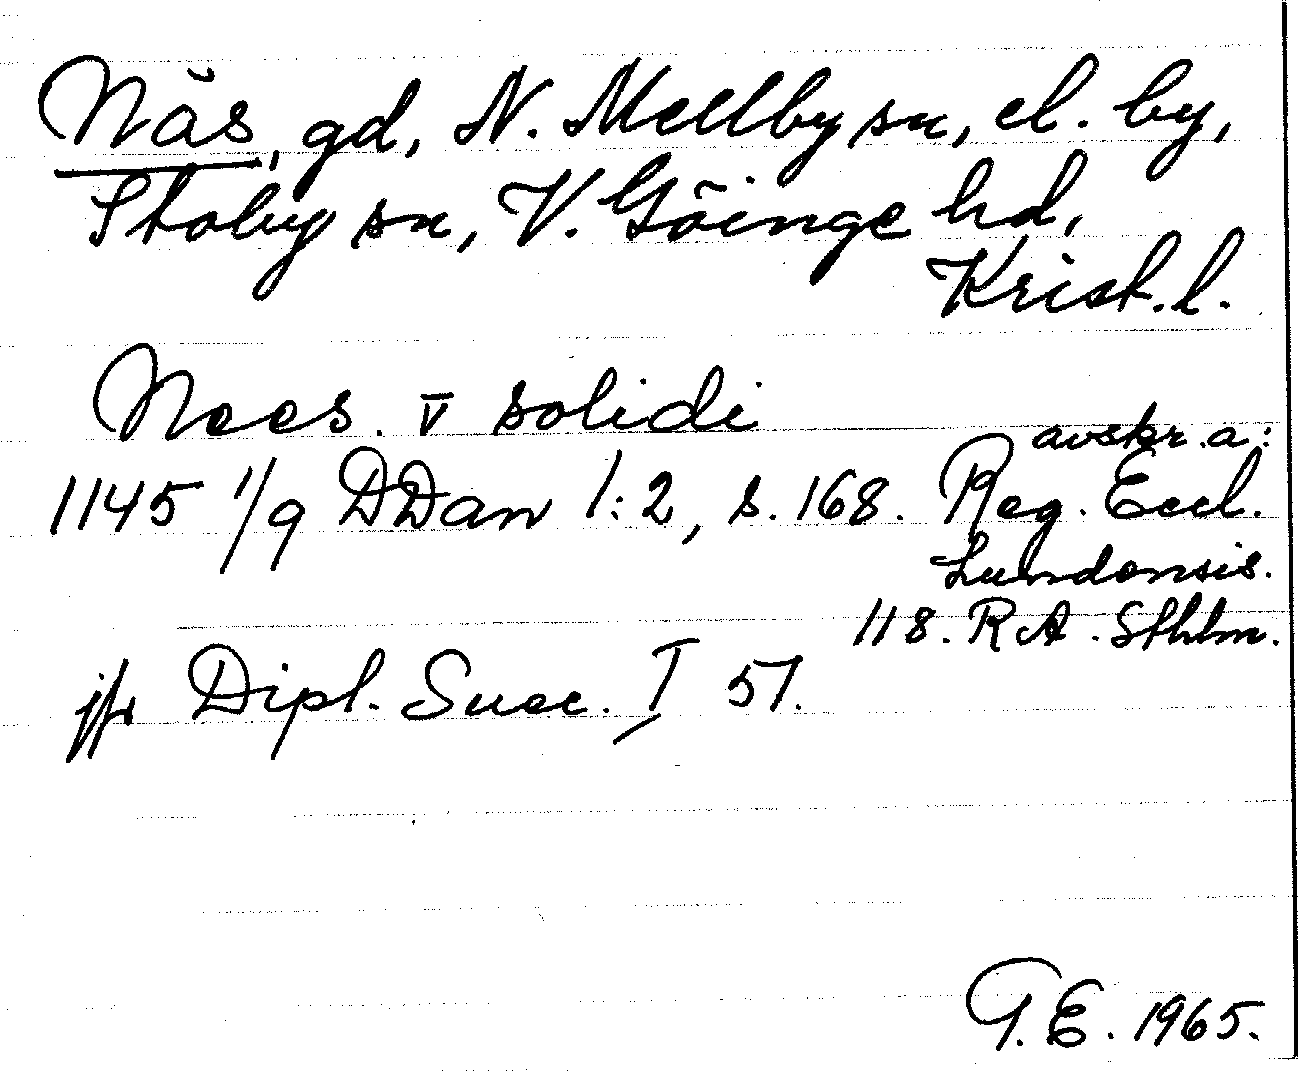 Näs, gd, N. Mellby sn, el. by,
Stoby sn, V. Göinge hd,
Krist. l.
Nees. v solidi
avskr. a:
1145 1/9 DDan 1:2, s. 168. Reg. Eccl.
Lundensis.
118. RA. Sthlm.
jfr Dipl. Suec. I 57.
G.E. 1965.